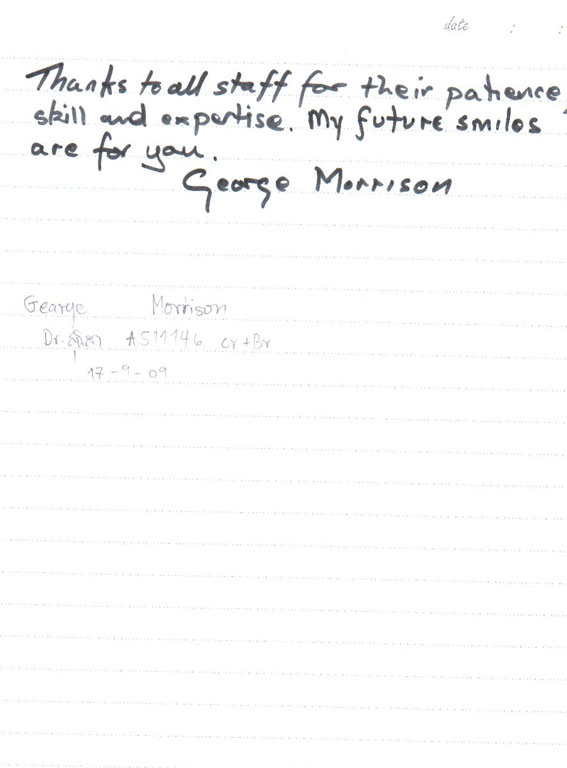 date : :
Thanks to all staff for their patience,
skill and expertise. My future smiles
are for you.
George Morrison
George Morrison
Dr. A511146 Cr+Br
17-9-09